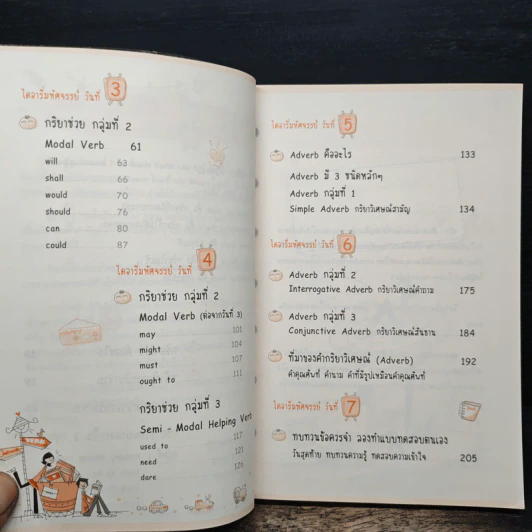 ไดอารี่มหัศจรรย์ วันที่ 3
กริยาช่วย กลุ่มที่ 2
Modal Verb 61
will 63
shall 66
would 70
should 76
can 80
could 87
ไดอารี่มหัศจรรย์ วันที่ 4
กริยาช่วย กลุ่มที่ 2
Modal Verb (ต่อจากวันที่ 3)
may 101
might 104
must 107
ought to 111
กริยาช่วย กลุ่มที่ 3
Semi - Modal Helping Verb
used to 117
need 121
dare 126
ไดอารี่มหัศจรรย์ วันที่ 5
Adverb คืออะไร 133
Adverb มี 3 ชนิดหลักๆ
Adverb กลุ่มที่ 1
Simple Adverb กริยาวิเศษณ์สามัญ 134
ไดอารี่มหัศจรรย์ วันที่ 6
Adverb กลุ่มที่ 2
Interrogative Adverb กริยาวิเศษณ์คำถาม 175
Adverb กลุ่มที่ 3
Conjunctive Adverb กริยาวิเศษณ์สันธาน 184
ที่มาของคำกริยาวิเศษณ์ (Adverb) 192
คำคุณศัพท์ คำนาม คำที่มีรูปเหมือนคำคุณศัพท์
ไดอารี่มหัศจรรย์ วันที่ 7
ทบทวนข้อควรจำ ลองทำแบบทดสอบตนเอง
วันสุดท้าย ทบทวนความรู้ ทดสอบความเข้าใจ 205